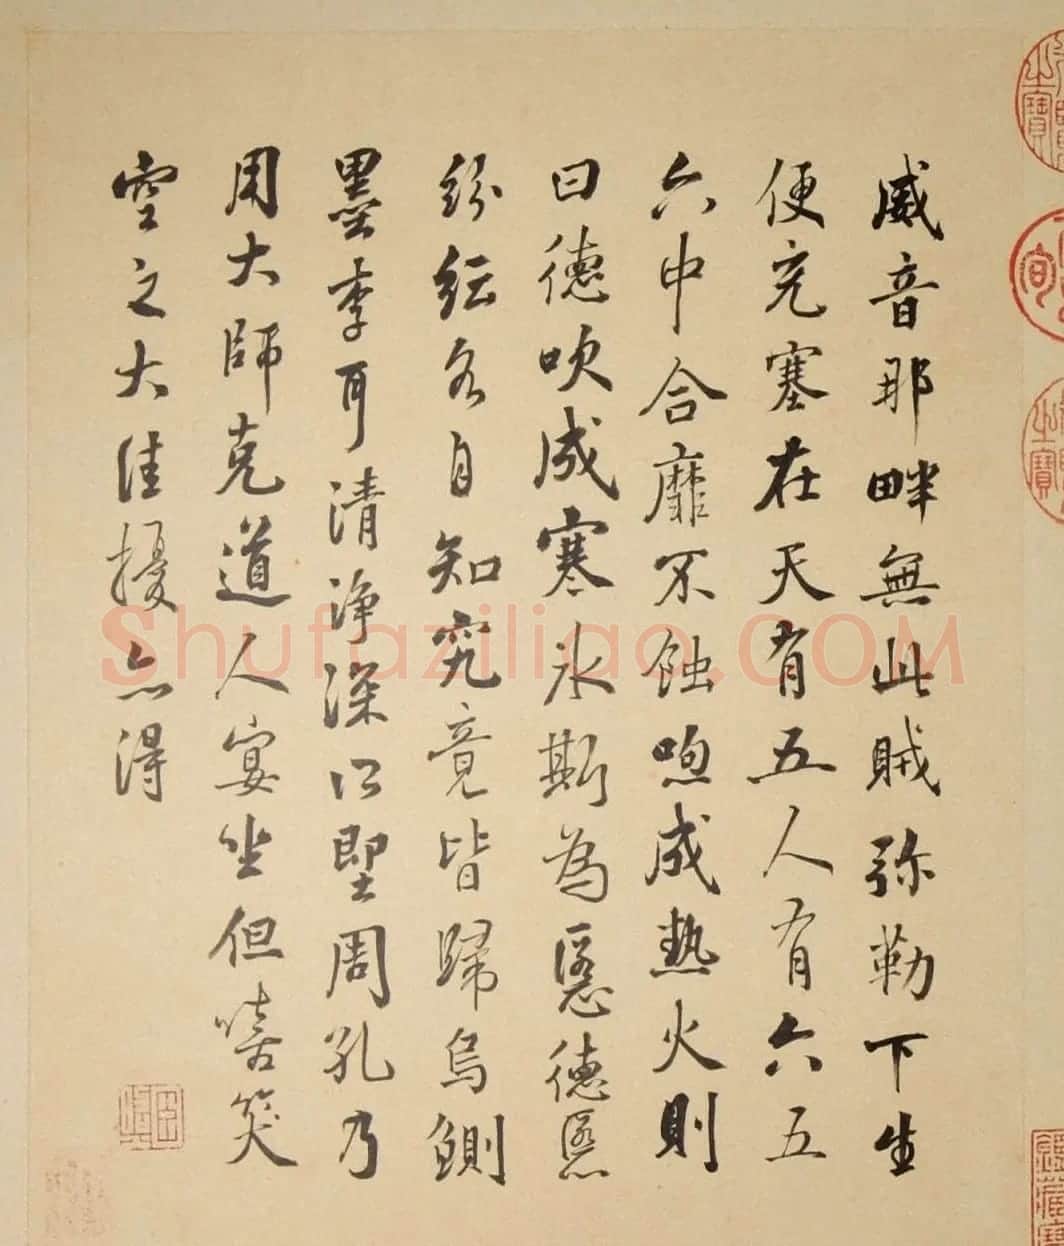 威音那畔無此賊弥勒下生
便充塞在天有五人有六五
六中合靡不蝕喣成熱火則
曰德吹成寒氷斯為慝德慝
紛紜各自知究竟皆歸烏鰂
墨李耳清浄深以堲周孔乃
用大師克道人宴坐但嘻笑
空之大佳擾亦得
Shufaziliao.COM